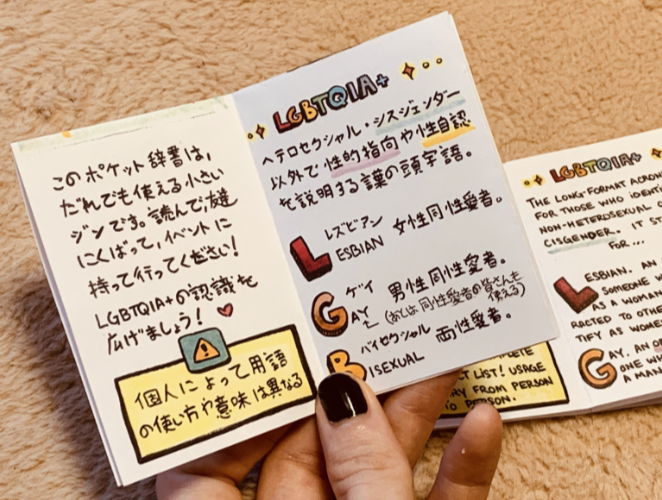 このポケット辞書は、
だれでも使える小さい
ジンです。読んで友達
にくばって、イベントに
持って行ってください!
LGBTQIA+の認識を
広げましょう!
個人によって用語
の使い方や意味は異なる
LGBTQIA+
ヘテロセクシャル・シスジェンダー
以外で性的指向や性自認
を説明する謹の頭字語。
レズビアン
LESBIAN 女性同性愛者。
ゲイ
GAY 男性同性愛者。
(あとは同性愛者の皆さんも
使える)
バイセクシャル
BISEXUAL 両性愛者。
LGBTQIA+
THE LONG-FORMAT ACRO
FOR THOSE WHO IDENTI
NON-HETEROSEXUAL
CISGENDER. IT S
FOR...
LESBIAN. AN
SOMEONE
AS A WOMA
RACTED TO OTHE
TIFY AS WOME
GAY. AN
ONE WI
A MAN
LETE
CT LIST! USAGE
AY FROM PERSON
TO PERSON.